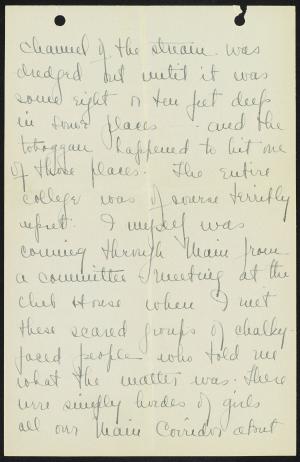 channel of the stream was
dredged out until it was
some eight or ten feet deep
in some places - and the
toboggan happened to hit one
of those places. The entire
college was of course terribly
upset. I myself was
coming through Main from
a committee meeting at the
Club House when I met
these scared groups of chalky-
faced people who told me
what the matter was. There
were simply hordes of girls
all over Main Corridor about